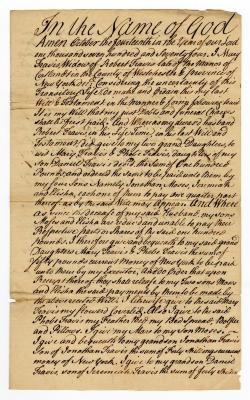 In the Name of God
Amen October the fourteenth in the Year of our Lord
one thousand seven hundred and Seventy four, I Mary
Travis Widow of Robert Travis late of the Manor of
Cortlandt in the County of Westchester & province of
New York. Considering the uncertainty of this
Transitory Life, do make and ordain this my last
Will & Testament in the manner & form following
is my Will that my just Debts and funeral Charges
shall be first paid. And Whereas my deceas'd husband
Robert Travis in his Life Time, in his last Will and
Testament did give to my two grand Daughters, to
wit Mary Travis & Phebe Travis, Daughters of my
Son the sum of
Pounds, and ordered the same to be paid unto them by
my four Sons Namely Jonathan Moses Jeremiah
and Elisha, each one of them to pay an
there of as by the said Will may Appear And Where
as since the decease of my said Husband, my sons
Moses and Elisha has been unable to pay their
Respective parts or Shares of the said one hundred
pounds. I therefore give and bequeath to my said grand
Daughters Mary Travis & Phebe Travis the sum of
fifty pounds current Money of New York to be paid
unto them by my Executors, And do Order that upon
Receipt thereof, they shall release to my Two sons Moses
and Elisha the said payments by them to be made by
the above recited Will. I likewise give to the said Mary
Travis my Also I give to the said
Phebe Travis my Feather Bed my Bed Bolster
and Pillows. I give my Mare to my Son Moses.
I give and bequeath to my grandson Jonathan Travis
Son of Jonathan Travis the sum of forty shillings current
money of New York. I give to my grandson Daniel
Travis son of Jeremiah Travis the sum of forty Shillings